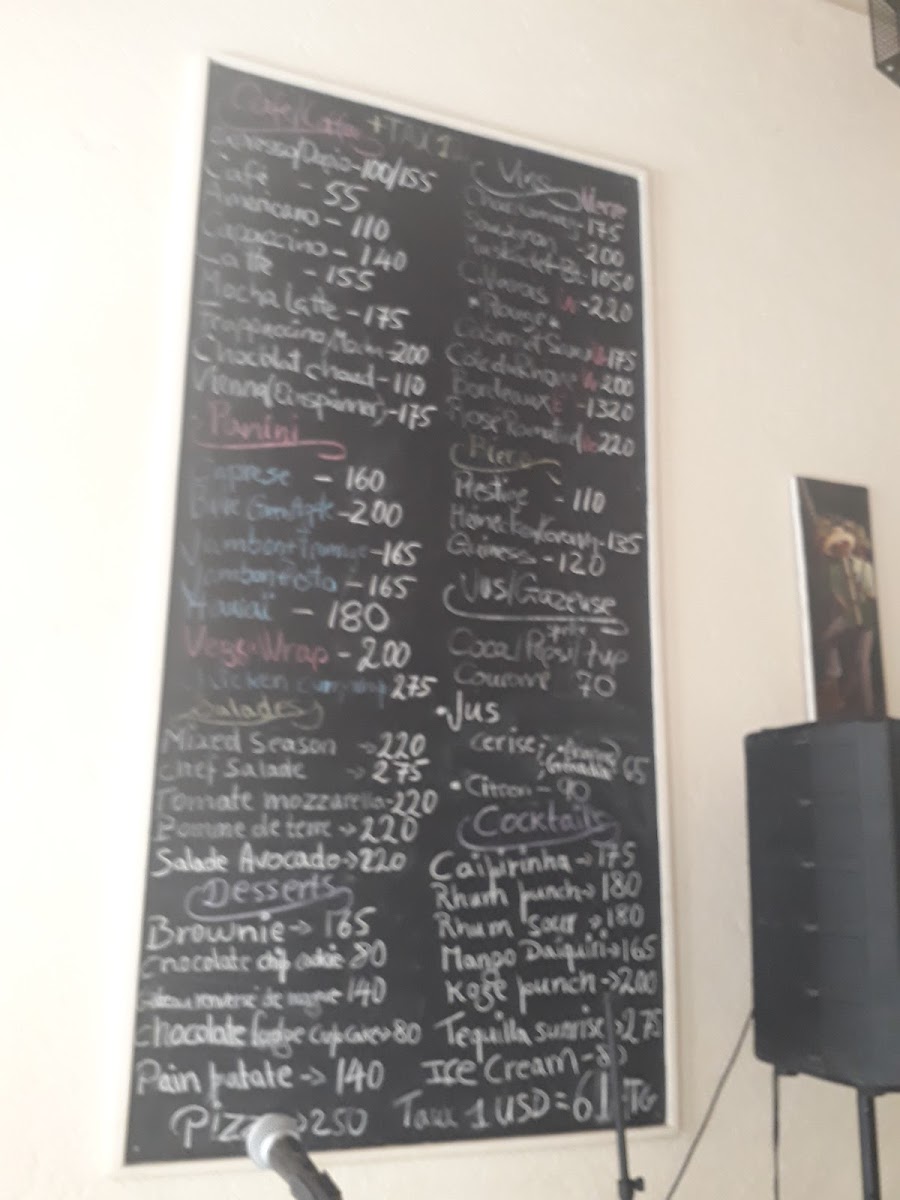 Café/Coffee +TAX 1
Espresso/Dopio-100/155
Café - 55
Americano - 110
Cappaccino - 140
Latte - 155
Mocha Latte - 175
Frappuccino/Mocha-200
Chocolat chaud - 110
Vienna(Einspänner)-175
Panini
Caprese - 160
-200
Jambon+Fromage-165
Jambon - 165
Hawaï - 180
Veggi Wrap - 200
Chicken 275
Salades
Mixed Season ->220
Chef Salade -> 275
Tomate mozzarella-220
Pomme de terre -> 220
Salade Avocado->220
Desserts
Brownie-> 165
Chocolate chip cookie 80
140
Chocolate fudge cupcake->80
Pain patate -> 140
Pizza ->250
Vins Verre
Chardonnay - 175
-200
-1050
-220
•Rouge•
Cabernet Sauv 175
Cote du Rhone 200
Bordeaux -1320
Rosé 220
Biere
Prestige - 110
-135
Guiness - 120
Jus/Gazeuse
sprite
Coca/Pepsi/7up
Couronne 70
•Jus
cerise;
Grenadia 65
•Citron - 90
Cocktails
Caipirinha -> 175
Rhum punch-> 180
Rhum sour ->180
Mango Daiquiri->165
punch ->200
Tequilla sunrise->275
Ice Cream-
Taux 1 USD = 61 TG